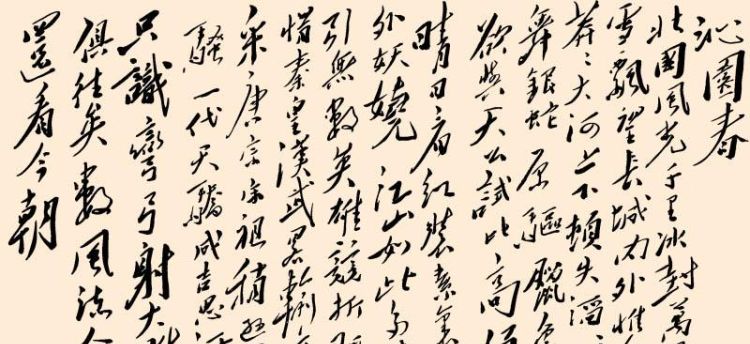 沁園春
北國風光千里冰封萬
雪飄望長城內外惟
莽々大河上下頓失滔
舞銀蛇原驅蠟象
欲與天公試比高須
晴日看紅裝素裹
外妖嬈江山如此多
引無數英雄競折
惜秦皇漢武畧輸文
采唐宗宋祖稍遜
騷一代天驕成吉思汗
只識彎弓射大
俱往矣數風流人
還看今朝